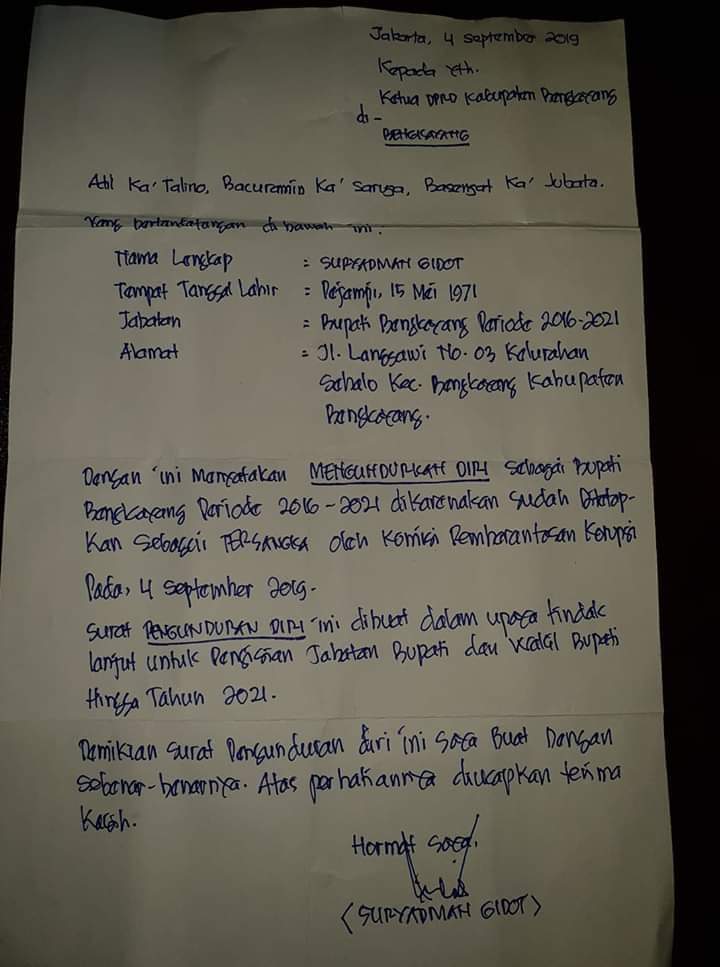 Jakarta, 4 September 2019
Kepada Yth.
Ketua DPRD Kabupaten Bengkayang
di -
BENGKAYANG
Adil Ka' Talino, Bacuramin Ka' Saruga, Basengat Ka' Jubata.
Yang bertandatangan di bawah ini:
Nama Lengkap : SURYADMAN GIDOT
Tempat Tanggal Lahir : Pejampi, 15 Mei 1971
Jabatan : Bupati Bengkayang Periode 2016-2021
Alamat : Jl. Langgawi No. 03 Kelurahan
Sebalo Kec. Bengkayang Kabupaten
Bengkayang.
Dengan ini Menyatakan MENGUNDURKAN DIRI Sebagai Bupati
Bengkayang Periode 2016-2021 dikarenakan sudah Ditetap-
kan Sebagai TERSANGKA oleh Komisi Pemberantasan Korupsi
Pada, 4 September 2019.
Surat PENGUNDURAN DIRI ini dibuat dalam upaya tindak
lanjut untuk Pengisian Jabatan Bupati dan Wakil Bupati
Hingga Tahun 2021.
Demikian Surat Pengunduran diri ini Saya Buat Dengan
Sebenar-benarnya. Atas perhatiannya diucapkan terima
Kasih.
Hormat Saya,
(SURYADMAN GIDOT)